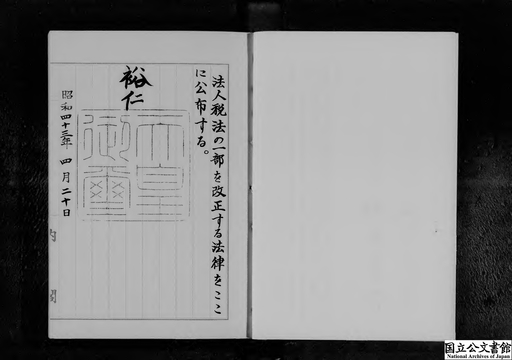 法人税法の一部を改正する法律をここ
に公布する。
裕仁
天皇
御璽
昭和四十三年四月二十日
内閣
国立公文書館
National Archives of Japan